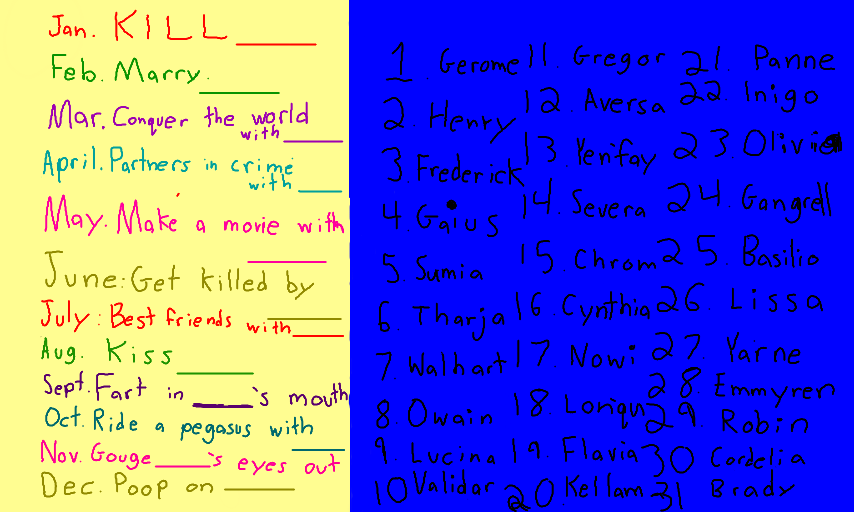 Jan. KILL ______
Feb. Marry. ______
Mar. Conquer the world
with ______
April. Partners in crime
with ______
May. Make a movie with
______
June: Get killed by
______
July: Best friends with ______
Aug. Kiss ______
Sept. Fart in ______'s mouth
Oct. Ride a pegasus with
______
Nov. Gouge ______'s eyes out
Dec. Poop on ______
1. Gerome
2. Henry
3. Frederick
4. Gaius
5. Sumia
6. Tharja
7. Walhart
8. Owain
9. Lucina
10 Validar
11. Gregor
12. Aversa
13. Yenfay
14. Severa
15. Chrom
16. Cynthia
17. Nowi
18. Loniqu
19. Flavia
20. Kellam
21. Panne
22 Inigo
23. Olivie
24. Gangrell
25. Basilio
26 Lissa
27 Yarne
28. Emmyren
29. Robin
30 Cordelia
31 Brady